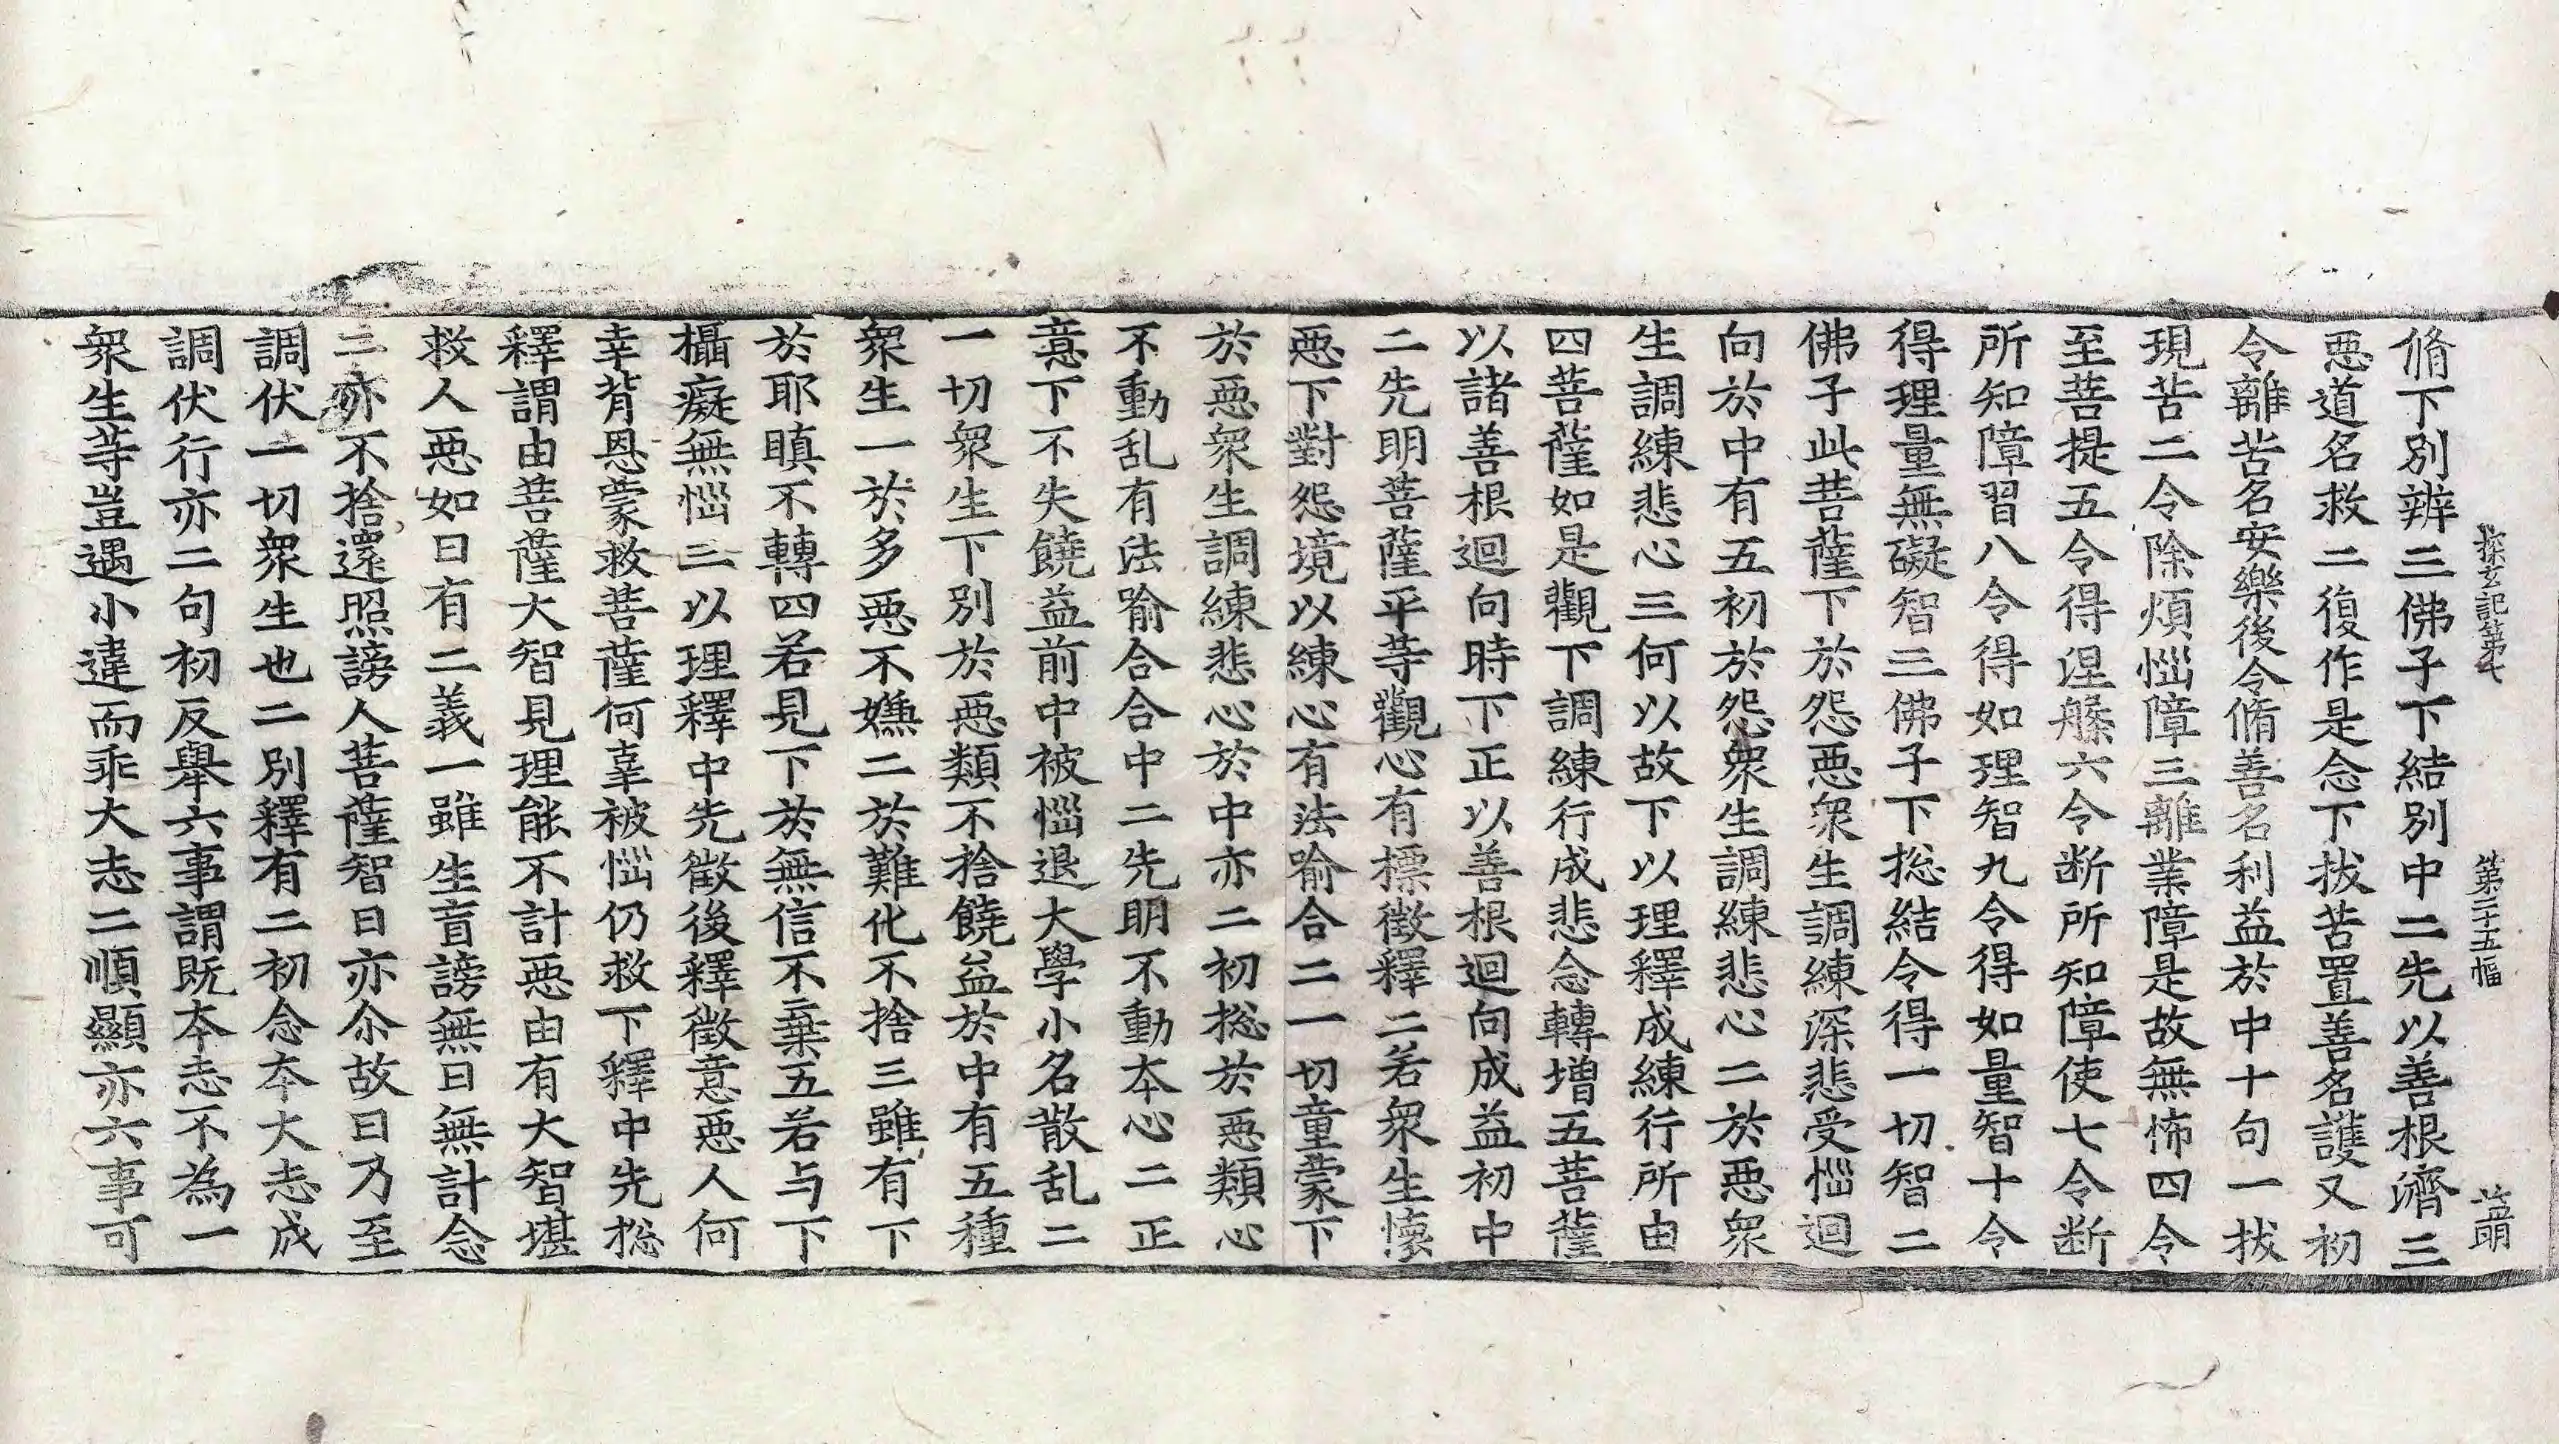 探玄記第七 第二十五幅 益明
脩下別辨三佛子下結別中二先以善根濟三
惡道名救二復作是念下拔苦置善名護又初
令離苦名安樂後令脩善名利益於中十句一拔
現苦二令除煩惱障三離業障是故無怖四令
至菩提五令得涅槃六令断所知障使七令断
所知障習八令得如理智九令得如量智十令
得理量無礙智三佛子下捴結令得一切智二
佛子此菩薩下於怨惡衆生調練深悲受惱迴
向於中有五初於怨衆生調練悲心二於惡衆
生調練悲心三何以故下以理釋成練行所由
四菩薩如是觀下調練行成悲念轉增五菩薩
以諸善根迴向時下正以善根迴向成益初中
二先明菩薩平等觀心有標徵釋二若衆生懷
惡下對怨境以練心有法喻合二一切童蒙下
於惡衆生調練悲心於中亦二初捴於惡類心
不動乱有法喻合合中二先明不動本心二正
意下不失饒益前中被惱退大學小名散乱二
一切衆生下別於惡類不捨饒益於中有五種
衆生一於多惡不嫌二於難化不捨三雖有下
於耶瞋不轉四若見下於無信不棄五若与下
攝癡無惱三以理釋中先徵後釋徵意惡人何
幸背恩蒙救菩薩何辜被惱仍救下釋中先捴
釋謂由菩薩大智見理能不計惡由有大智堪
救人惡如日有二義一雖生盲謗無日無計念
二亦不捨還照謗人菩薩智日亦尒故曰乃至
調伏一切衆生也二別釋有二初念本大志成
調伏行亦二句初反舉六事謂既本志不為一
衆生等豈遇小違而乖大志二順顯亦六事可